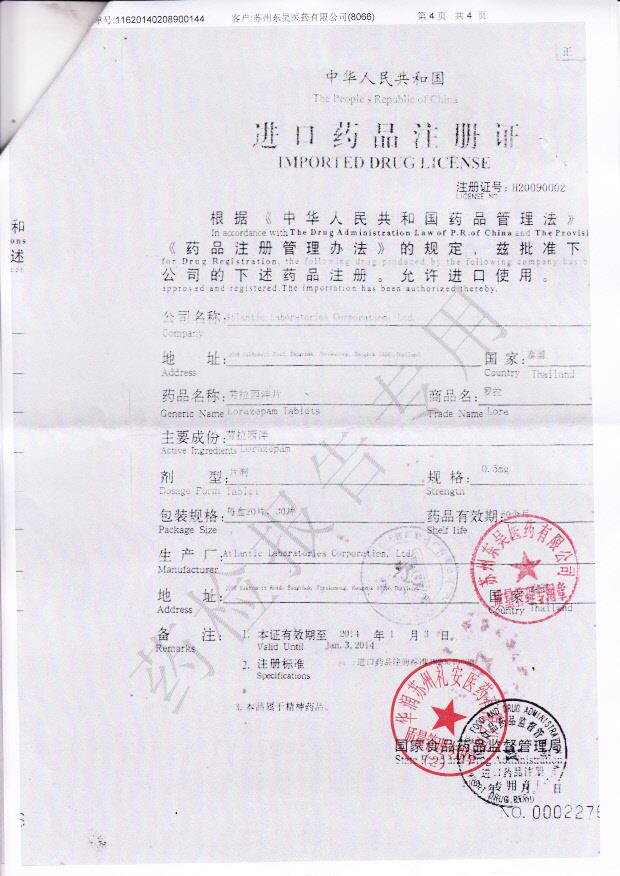 单号:11620140208900144 客户:苏州东吴医药有限公司(8066) 第 4 页 共 4 页
正
中华人民共和国
The People's Republic of China
进口药品注册证
IMPORTED DRUG LICENSE
注册证号: H20090002
LICENSE NO.
和 根据《中华人民共和国药品管理法》
ons In accordance with The Drug Administration Law of P.R.of China and The Provisi
述 《药品注册管理办法》的规定，兹批准下
for Drug Registration, the following drug produced by the following company has b
公司的下述药品注册。允许进口使用。
approved and registered.The importation has been authorized thereby.
公司名称: Atlantic Laboratories Corporation, Ltd.
Company
地 址: Bangkok Thailand 国 家: 泰国
Address Country Thailand
药品名称: 劳拉西泮片 商品名: 罗拉
Generic Name Lorazepam Tablets Trade Name Lora
主要成份: 劳拉西泮
Active Ingredients Lorazepam
剂 型: 片剂 规 格: 0.5mg
Dosage Form Tablet Strength
包装规格: 每盒20片，30片 药品有效期:
Package Size Shelf life
生 产 厂: Atlantic Laboratories Corporation, Ltd.
Manufacturer
地 址: 国 家
Address Country Thailand
备 注: 1. 本证有效期至 2014 年 1 月 3 日。
Remarks Valid Until Jan. 3, 2014
2. 注册标准 : 进口药品注册标准
Specifications
3. 本品属于精神药品。
国家食品药品监督管理局
State Food and Drug Administration
年 月 日
NO. 0002276
药检报告专用
苏州东吴医药有限公司
质量管理专用章
华润苏州礼安医药有
(2)
FOOD AND DRUG ADMINISTRATION
食品药品监督管
进口药品注册
专用章